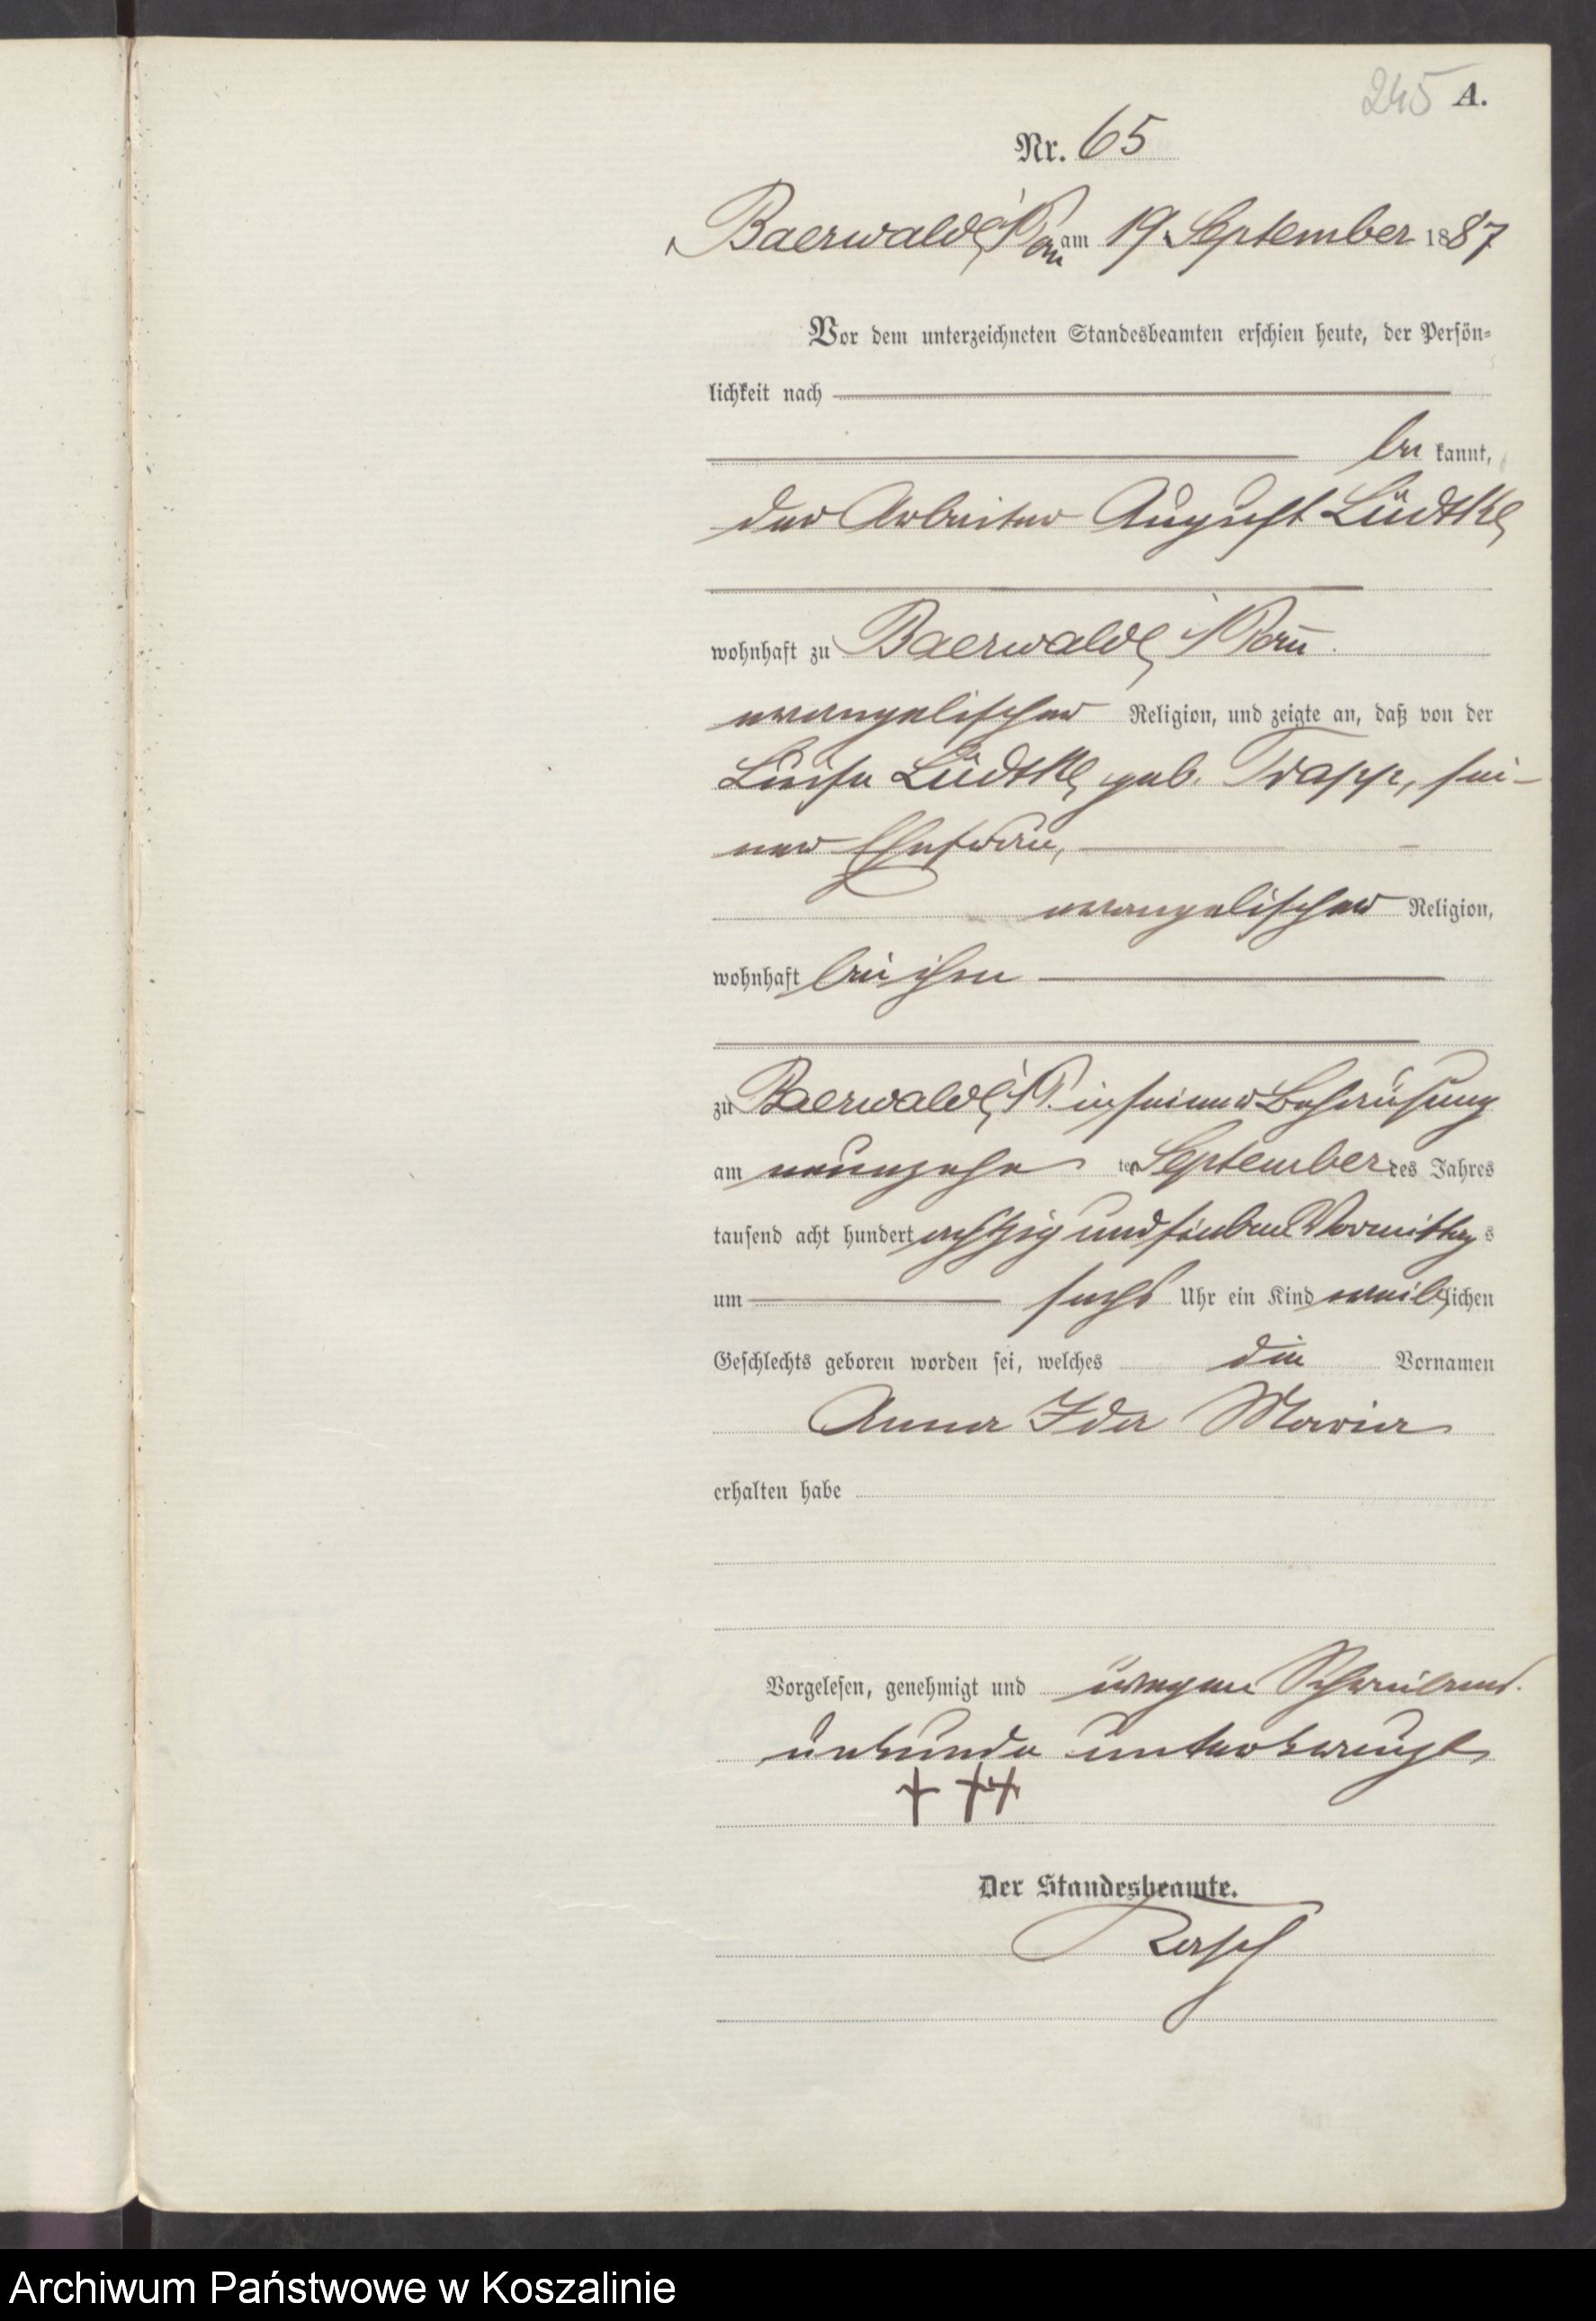 245 A.
Nr. 65
Baerwalde i/Pom am 19. September 1887
Vor dem unterzeichneten Standesbeamten erschien heute, der Persön-
lichkeit nach
be kannt,
der Arbeiter August Lüdtke
wohnhaft zu Baerwalde i/Pom.
evangelischer Religion, und zeigte an, daß von der
Luise Lüdtke, geb. Trapp, sei-
ner Ehefrau,
evangelischer Religion,
wohnhaft bei ihm
zu Baerwalde i/P. in seiner Behausung
am neunzehn ten September des Jahres
tausend acht hundert achtzig und sieben Vormittags
um sechs Uhr ein Kind weiblichen
Geschlechts geboren worden sei, welches die Vornamen
Anna Ida Maria
erhalten habe
Vorgelesen, genehmigt und wegen Schreibens-
unkunde unterkreuzt
+ ++
Der Standesbeamte.
Archiwum Państwowe w Koszalinie